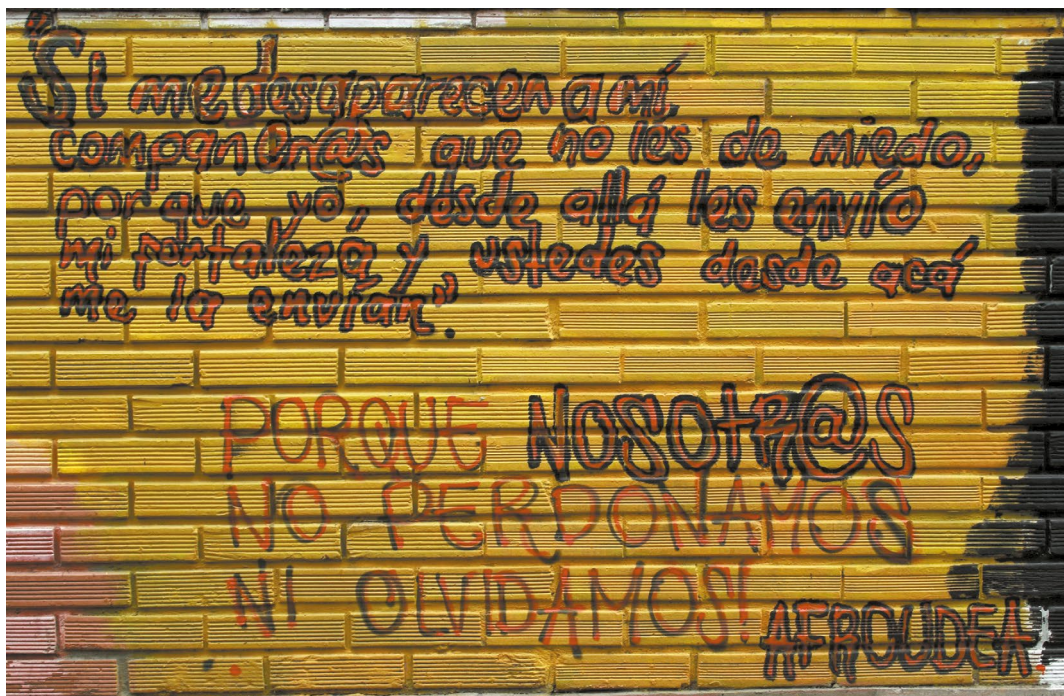 "Si me desaparecen a mí
compañer@s que no les de miedo,
porque yo, desde allá les envío
mi fortaleza y ustedes desde acá
me la envían".
PORQUE NOSOTR@S
NO PERDONAMOS
NI OLVIDAMOS!
AFROUDEA.